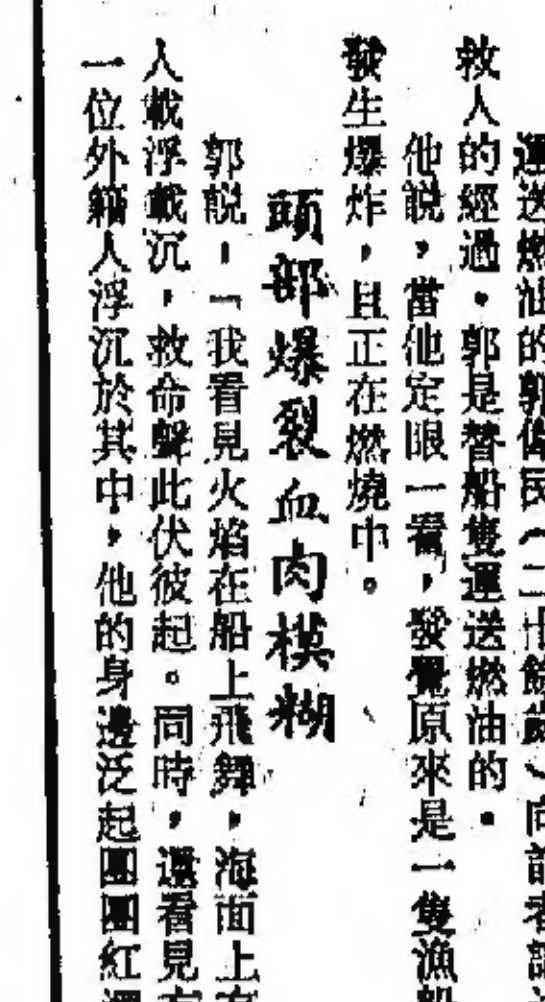 運送燃油的郭偉民（二十餘歲）向記者
救人的經過。郭是替船隻運送燃油的。
他說，當他定眼一看，發覺原來是一隻漁船
發生爆炸，且正在燃燒中。
頭部爆裂血肉模糊
郭說，「我看見火焰在船上飛舞，海面上有
人載浮載沉，救命聲此伏彼起。同時，還看見有
一位外籍人浮沉於其中，他的身邊泛起團團紅